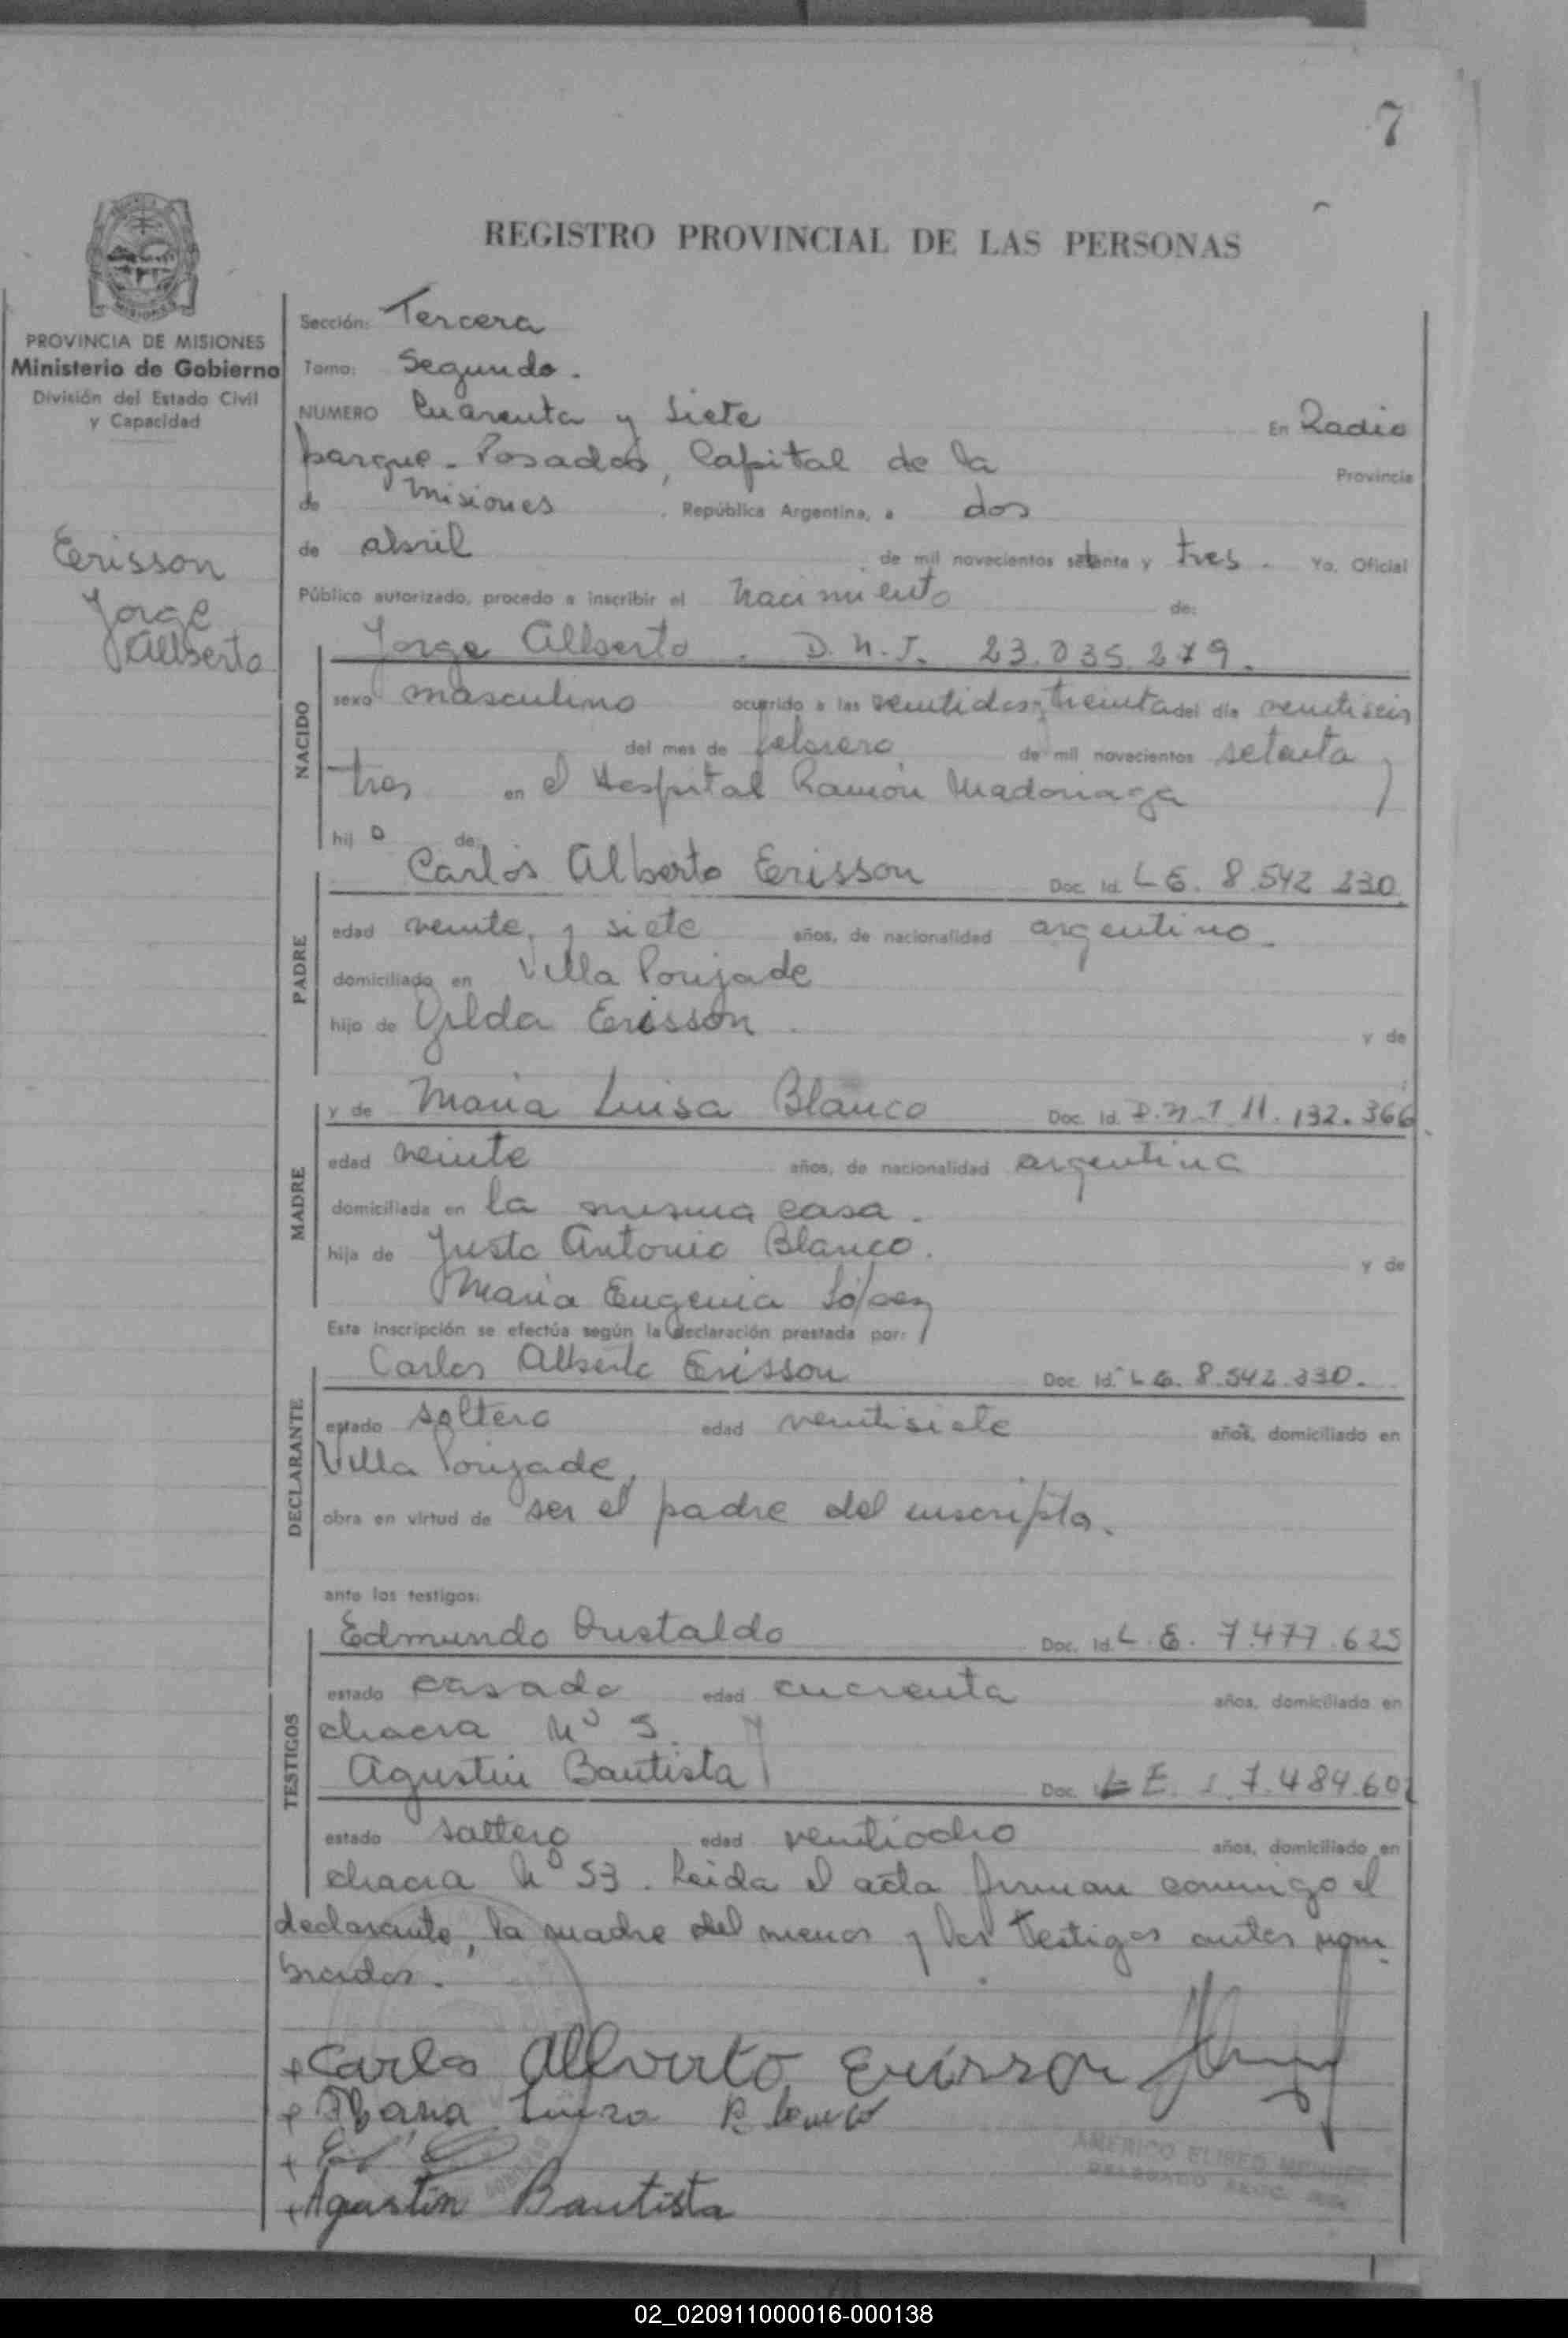 7
REGISTRO PROVINCIAL DE LAS PERSONAS
MISIONES
PROVINCIA DE MISIONES
Ministerio de Gobierno
División del Estado Civil
y Capacidad
Erisson
Jorge
Alberto
Sección: Tercera
Tomo: Segundo.
NUMERO Cuarenta y Siete En Radio
parque - Posadas, Capital de la Provincia
de Misiones, República Argentina, a dos
de abril de mil novecientos setenta y tres. Yo, Oficial
Público autorizado, procedo a inscribir el nacimiento de:
Jorge Alberto. D.N.I. 23.035.279.
NACIDO
sexo masculino ocurrido a las veintidos, treinta del día veintiseis
del mes de febrero de mil novecientos setenta y
tres en el Hospital Ramón Madariaga
hijo de:
Carlos Alberto Erisson Doc. Id. L E. 8.542 230.
PADRE
edad veinte y siete años, de nacionalidad argentino.
domiciliado en Villa Poujade
hijo de Gilda Erisson. y de
MADRE
y de Maria Luisa Blanco Doc. Id. D.N.I 11.132.366
edad veinte años, de nacionalidad argentina
domiciliada en la misma casa.
hija de Justo Antonio Blanco. y de
Maria Eugenia López
Esta inscripción se efectúa según la declaración prestada por:
Carlos Alberto Erisson Doc. Id. L E. 8.542.230.
DECLARANTE
estado soltero edad veintisiete años, domiciliado en
Villa Poujade,
obra en virtud de ser el padre del inscripto.
ante los testigos:
Edmundo Doc. Id. L.E. 7.477.625
TESTIGOS
estado casado edad cuarenta años, domiciliado en
chacra Nº 5. y
Agustin Bautista Doc. L E. 7.484.601
estado soltero edad veintiocho años, domiciliado en
chacra Nº 53. Leida el acta firman conmigo el
declarante, la madre del menor y los testigos antes nom
brados.
+ Carlos Alberto Erisson
+ Maria Luisa Blanco
+
+ Agustin Bautista
AMERICO ELISEO
DELEGADO
02_020911000016-000138